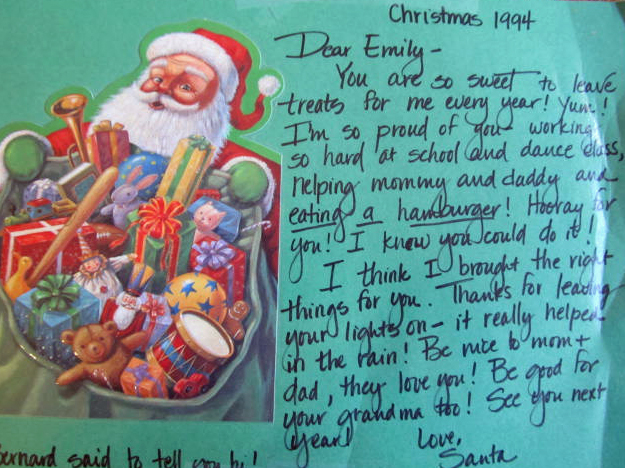 Christmas 1994
Dear Emily -
You are so sweet to leave
treats for me every year! Yum!
I'm so proud of you - working
so hard at school and dance class,
helping mommy and daddy and
eating a hamburger! Hooray for
you! I knew you could do it!
I think I brought the right
things for you. Thanks for leaving
your lights on - it really helped
in the rain! Be nice to mom +
dad, they love you! Be good for
your grandma too! See you next
year!
Love,
Santa
Bernard said to tell you hi!